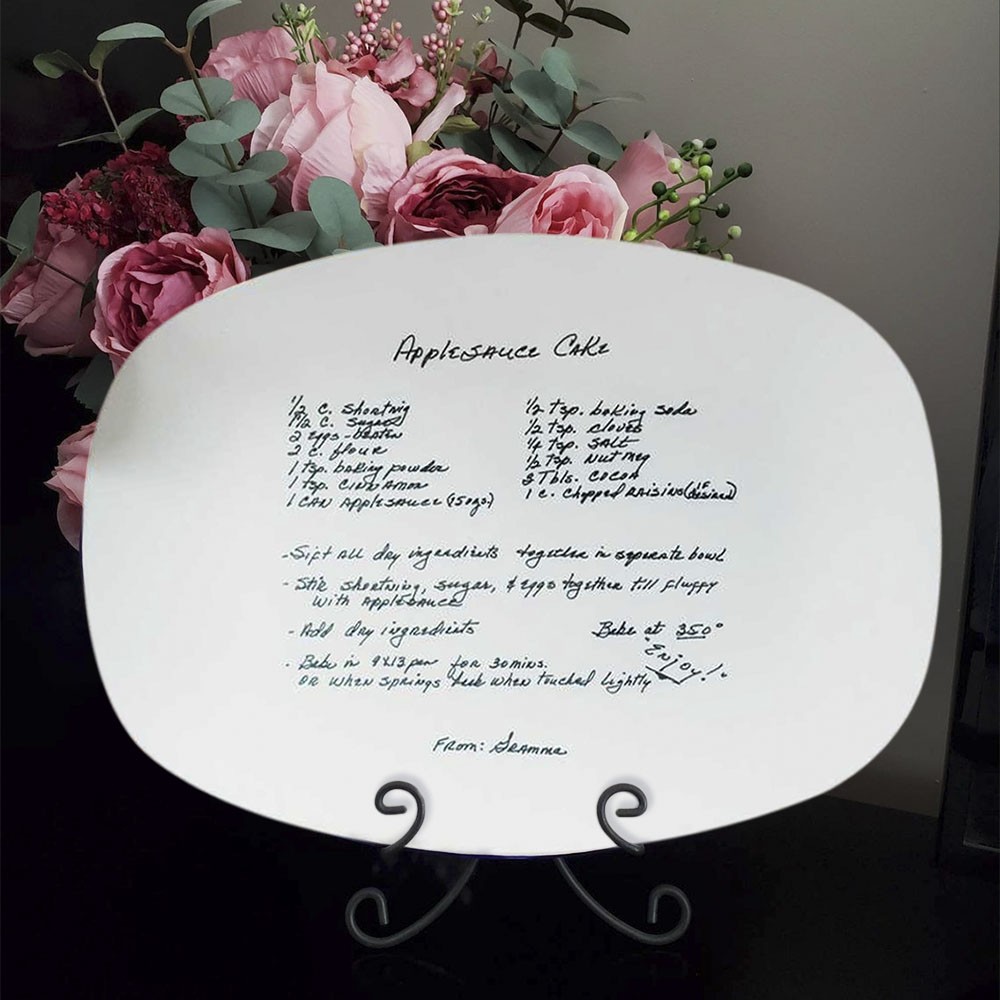 Applesauce Cake
1/2 c. shortnig
1 1/2 c. sugar
2 eggs - beaten
2 c. flour
1 tsp. baking powder
1 tsp. cinnamon
1 can applesauce (15 ozs.)
1/2 tsp. baking soda
1/2 tsp. cloves
1/4 tsp. salt
1/2 tsp. nutmeg
3 Tbls. cocoa
1 c. chopped raisins (if desired)
- Sift all dry ingredients together in separate bowl
- Stir shortning, sugar, & eggs together till fluffy
with applesauce
- Add dry ingredients
Bake at 350°
- Bake in 9x13 pan for 30 mins.
or when springs back when touched lightly
"Enjoy!"
From: Gramma